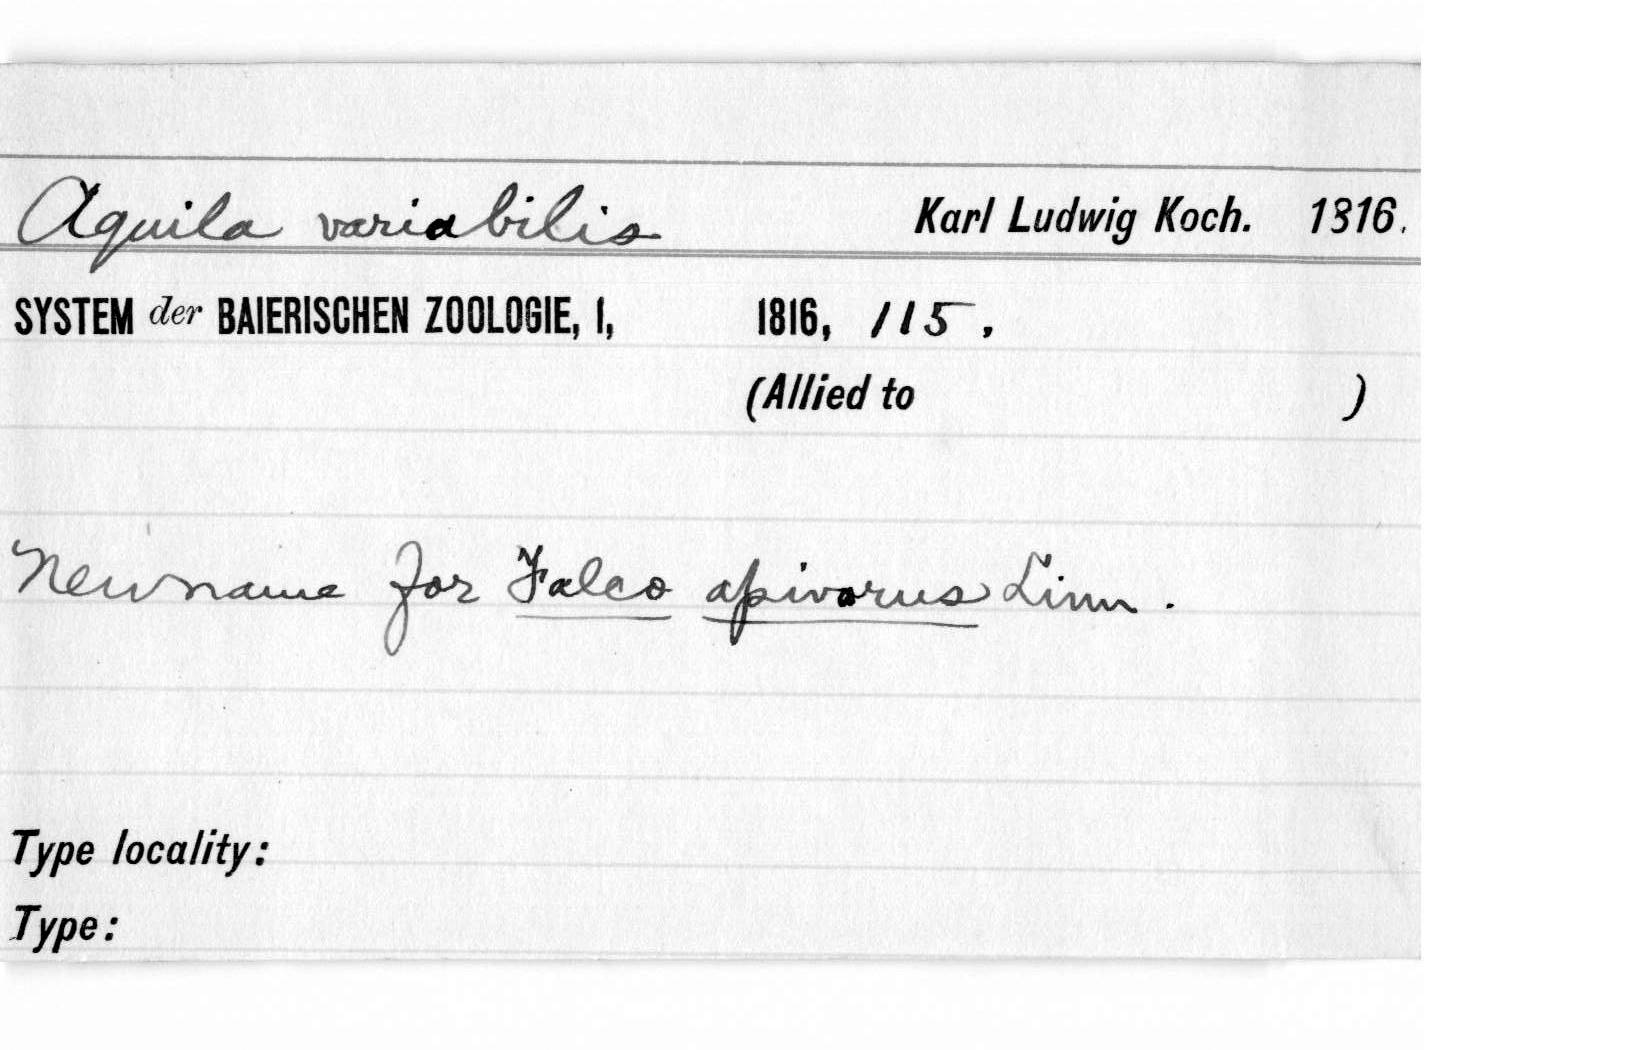 Aquila variabilis Karl Ludwig Koch. 1816.
SYSTEM der BAIERISCHEN ZOOLOGIE, I, 1816, 115.
(Allied to )
New name for Falco apivorus Linn.
Type locality:
Type: